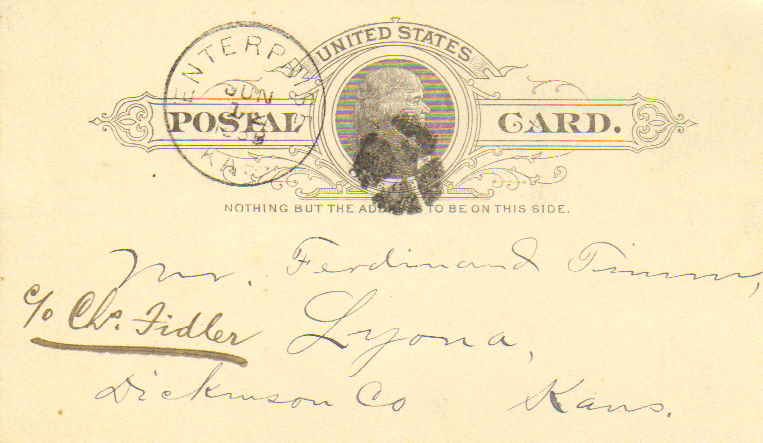 UNITED STATES
ENTERPRISE
JUN
KAS
POSTAL CARD.
NOTHING BUT THE ADDRESS TO BE ON THIS SIDE.
Mr. Ferdinand Timm,
c/o Chs. Fidler
Lyona,
Dickinson Co Kans.